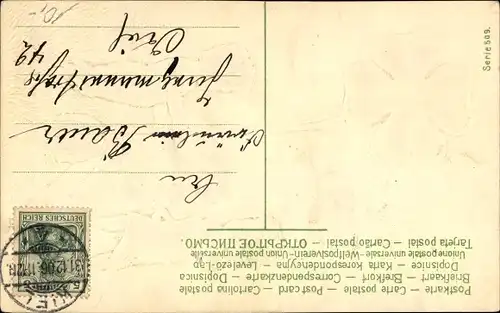 Postkarte — Carte postale — Post card — Carolina postale
Briefkaart — Brefkort — Correspondenzkarte — Dopisnica
Dopisnice — Karta korespondencyjna — Levelező-Lap
Unione postale universale - Weltpostverein - Union postale universelle
Tarjeta postal — Cartão postal — ОТКРЫТОЕ ПИСЬМО.
DEUTSCHES REICH
5
5
KIEL
31.12.06. 11-12N
An
Fräulein Bauer
Jungmannstraße
72
Kiel
Serie 599.
10,-